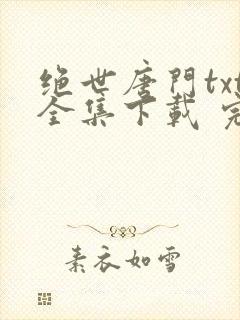 绝世唐門txt
全集下載 完
素衣如雪